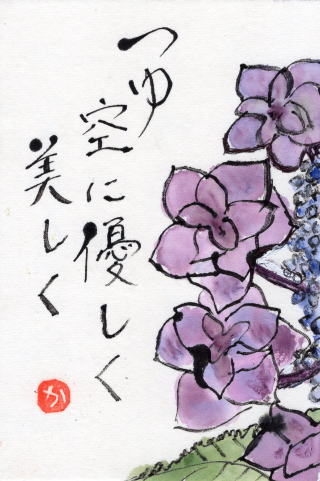 つゆ
空に優しく
美しく
か